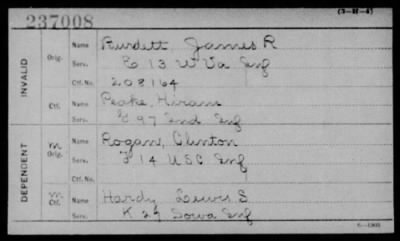 237008
(3-H-4)
INVALID
Orig.
Name Burdett, James R
Serv. E 13 W Va Inf
Ctf. No. 208164
Ctf.
Name Peake, Hiram
Serv. E 97 Ind Inf
DEPENDENT
m Orig.
Name Rogan, Clinton
Serv. F 14 USC Inf
Ctf. No.
m Ctf.
Name Hardy Lewis S.
Serv. K 29 Iowa Inf